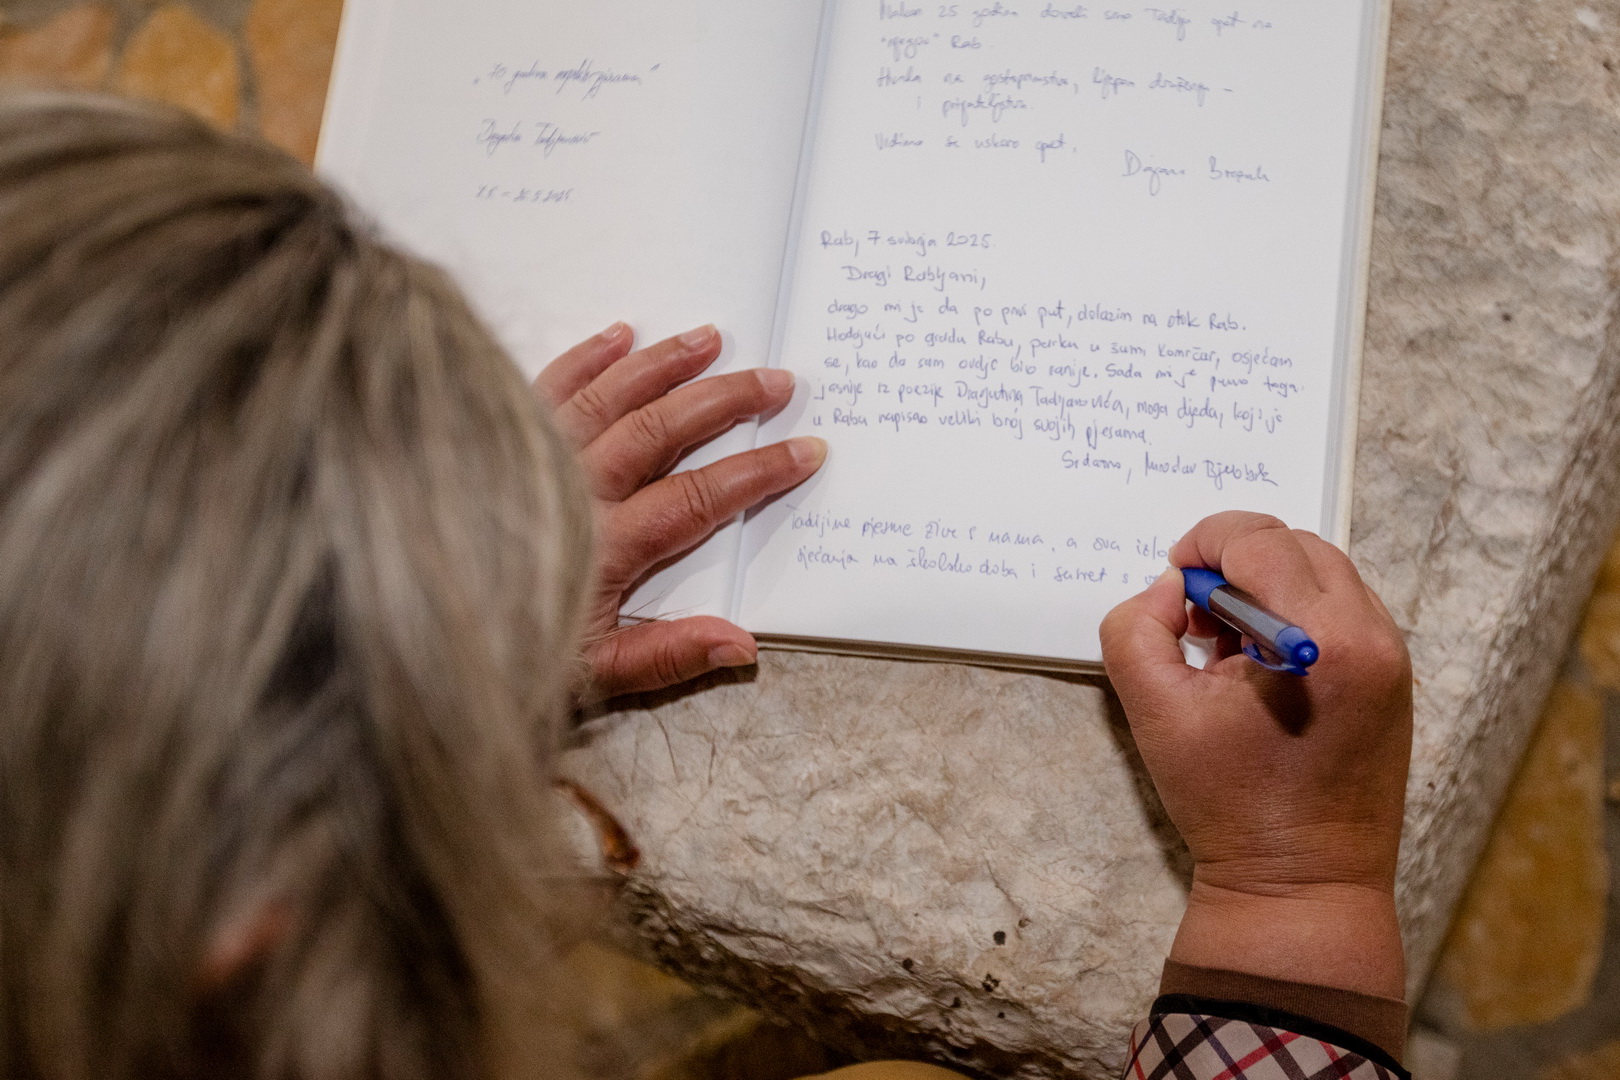 „70 godina
Dragutin Tadijanović
7.5. – 20.5.2025
Nakon 25 godina doveli smo Tadiju opet na
"njegov" Rab.
Hvala na gostoprimstvu, lijepom druženju –
i prijateljstvu.
Vidimo se uskoro opet.
Dajana
Rab, 7 svibnja 2025
Dragi Rabljani,
drago mi je da po prvi put, dolazim na otok Rab.
Hodajući po gradu Rabu, parku u šumi Komrčar, osjećam
se, kao da sam ovdje bio ranije. Sada mi je puno toga
jasnije iz poezije Dragutina Tadijanovića, moga djeda, koji je
u Rabu napisao veliki broj svojih pjesama.
Srdačno, Miroslav
Tadijine pjesme žive s nama, a ova izlo
sjećanja na školsko doba i susret s